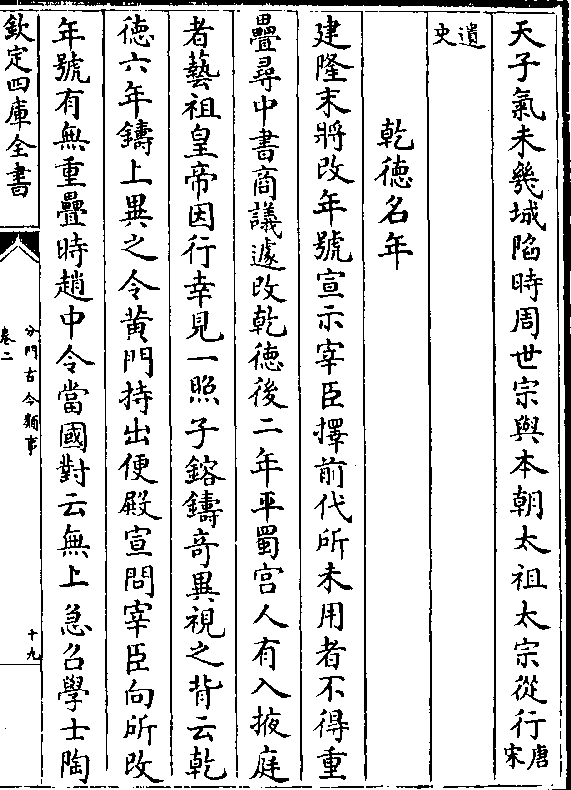 天子氣未幾城陷時周世宗與本朝太祖太宗從行唐宋
遺史
乾徳名年
建隆末將改年號宣示宰臣擇前代所未用者不得重
疊尋中書商議遽改乾德後二年平蜀宫人有入掖庭
者藝祖皇帝因行幸見一照子鎔鑄竒異視之背云乾
徳六年鑄上異之令黄門持出便殿宣問宰臣向所改
年號有無重疊時趙中令當國對云無上急召學士陶
欽定四庫全書
分門古今類事
卷二
十九